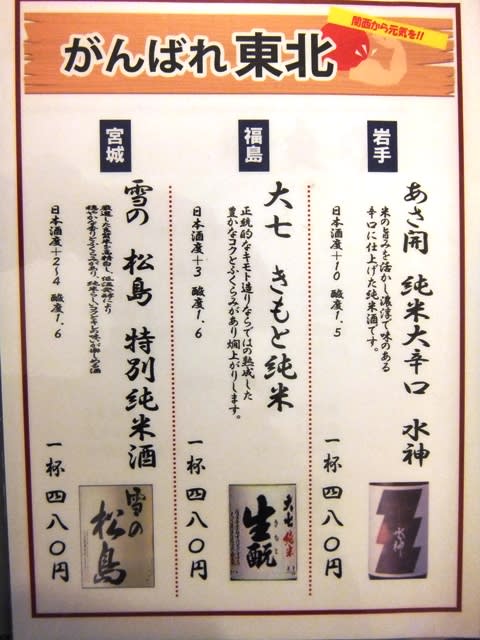 がんばれ東北
関西から元気を!!
岩手
あさ開 純米大辛口 水神
米の旨みを活かし濃淳で味のある
辛口に仕上げた純米酒です。
日本酒度+10 酸度1.5
一杯 四八〇円
水神
福島
大七 きもと純米
正統的なキモト造りならではの熟成した
豊かなコクとふくらみがあり燗上がりします。
日本酒度+3 酸度1.6
一杯 四八〇円
大七 純米
きもと
生酛
宮城
雪の 松島 特別純米酒
日本酒度+2~4 酸度1.6
一杯 四八〇円
雪の
松島